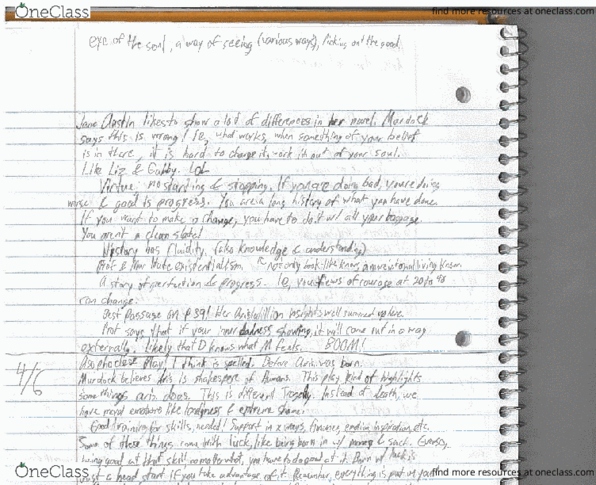 OneClass
find more resources at oneclass.com
eye of the soul, a way of seeing (various ways), Picking out the good
Jane Austin likes to show a lot of differences in her novel. Murdock
says this is wrong! IE, what works, when something of your belief
is in there, it is hard to change it, work it out of your soul.
Like Liz & Gabby. LOL
Virtue: restarting & stopping. If you are doing bad, you're doing
worse & good is progress. You are a long history of what you have done.
If you want to make a change, you have to do it w/ all your baggage.
You aren't a clean slate!
History has fluidity. (aka Knowledge & understanding)
existentialism. Not only look like Knows
A story of perfection & progress. IE, your views of courage at 20 to 40
can change.
Best Passage on p 39! like
that says that if your inner darkness showing, it will come out in a way
externally. Likely that D knows what M feels. BOOM!
4/6
Play! I think is spelled. Before Aris was born.
Murdock believes Aris is shakespere of Humans. This play kind of highlights
some things aris does. This is different Tragedy. Instead of death, we
have moral exposure like loneliness & extreme shame.
Good training for skills, needed! Support in x ways, finances, endless inspiration, etc.
Some of these things come with luck, like being born in w/ money & such.
being good at that skill no matter what, you have to do good at it. Born w/ luck is
just a head start if you take advantage of it. Remember, everything is put in your
OneClass
find more resources at oneclass.com